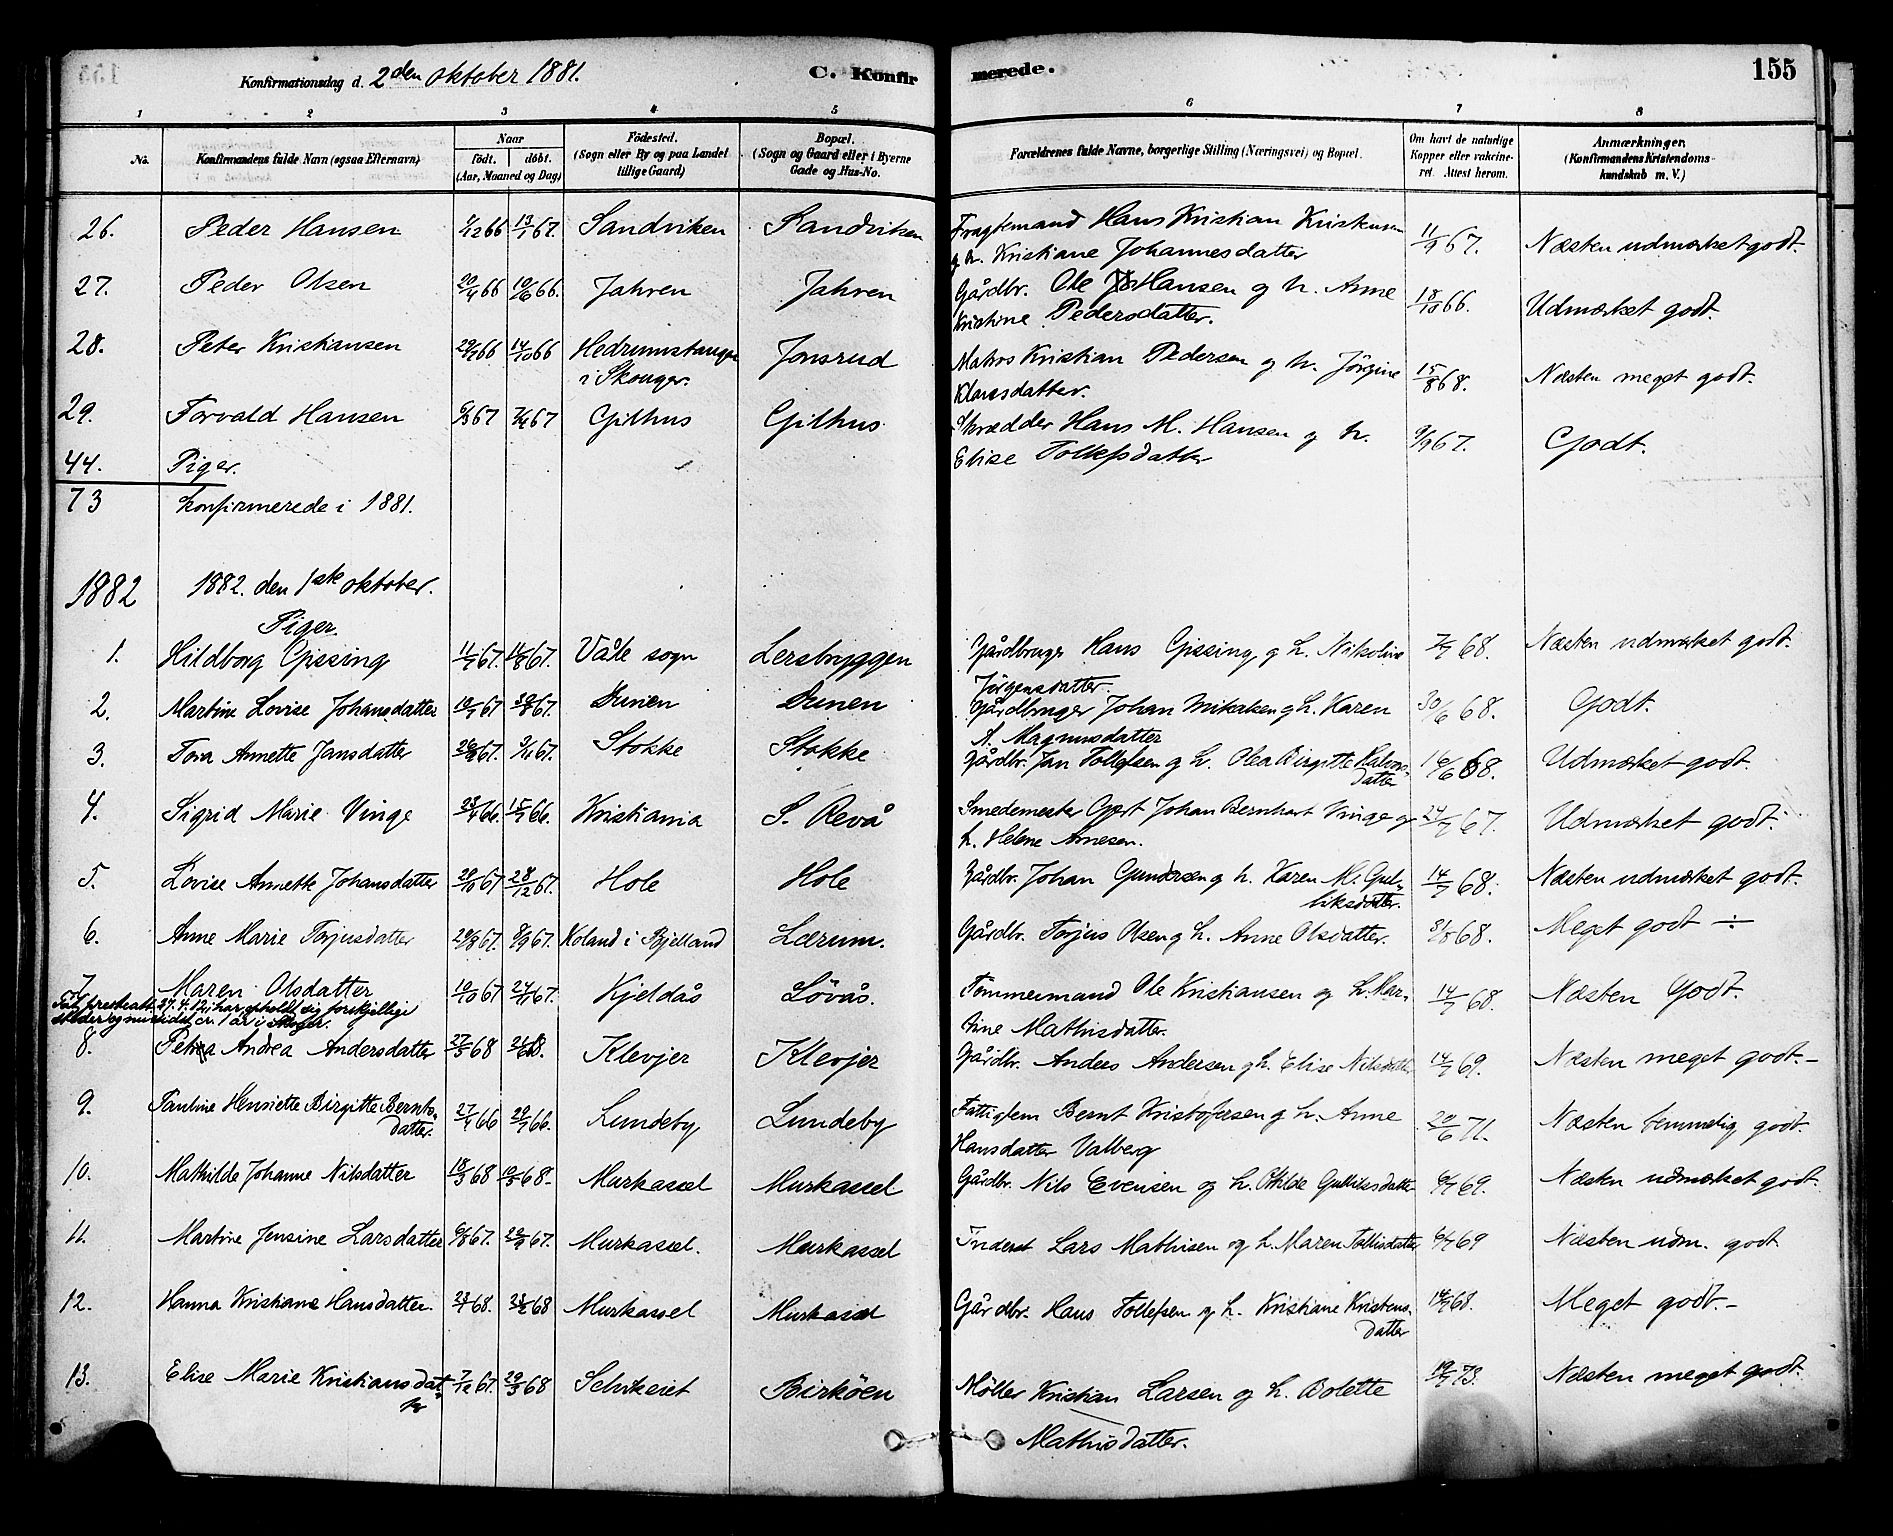 Konfirmationsdag d. 2den oktober 1881. C. Konfirmerede. 155
1 2 3 4 5 6 7 8
No. Konfirmandens fulde Navn (ogsaa Efternavn) Naar født. døbt. (Aar, Maaned og Dag) Fødested. (Sogn eller By og paa Landet tillige Gaard) Bopæl. (Sogn og Gaard eller i Byerne Gade og Hus-No. Forældrenes fulde Navne, borgerlige Stilling (Næringsvei) og Bopæl. Om havt de naturlige Kopper eller vakcineret. Attest herom. Anmærkninger. (Konfirmandens Kristendomskundskab m. V.)
26. Peder Hansen 1/12 66 13/1 67. Sandviken Sandviken Fragtemand Hans Kristian Kristensen 11/9 67. Næsten udmærket godt.
g h. Kristiane Johannesdatter
27. Peder Olsen 20/4 66 10/6 66. Jahren Jahren Gårdbr. Ole Hansen g h. Anne 18/10 66. Udmærket godt.
Kristine Pedersdatter.
28. Peter Kristiansen 29/7 66 14/10 66 Hedrumstangen Jonsrud Matros Kristian Pedersen og h. Jørgine 15/8 68. Næsten meget godt.
i Skouger. Klausdatter.
29. Torvald Hansen 6/3 67 7/4 67 Gilhus Gilhus Skrædder Hans M. Hansen g h. 9/9 67. Godt.
44. Piger. Elise Tollefsdatter
73 konfirmerede i 1881.
1882 1882. den 1ste oktober.
Piger
1. Hildborg Gissing 11/7 67. 11/8 67. Våle sogn Lersbryggen Gårdbruger Hans Gissing, g h. Nikoline 7/7 68. Næsten udmærket godt.
Jørgensdatter.
2. Martine Lovise Johansdatter 10/7 67 Dunen Dunen Gårdbruger Johan Mikalsen g h. Karen 30/6 68. Godt.
A. Magnusdatter
3. Tora Annette Jansdatter 67. 67. Stokke Stokke Gårdbr. Jan Tollefsen g h. Olea Birgitte Halvors- 16/6 68. Udmærket godt.
datter
4. Sigrid Marie Vinge 23/4 66. 15/7 66. Kristiania S. Revå Smedemester Gjert Johan Bernhart Vinge og 24/7 67. Udmærket godt.
h. Helene Arnesen.
5. Lovise Annette Johansdatter 28/10 67 28/12 67. Hole Hole Gårdbr. Johan Gundersen g h. Karen M. Gul- 14/7 68. Næsten udmærket godt.
liksdatter.
6. Anne Marie Torjusdatter 20/8 67. 8/9 67. Koland i Bjelland Lærum. Gårdbr. Torjus Olsen g h. Anne Olsdatter. 31/8 68. Meget godt ÷
7 Maren Olsdatter 10/10 67 24/11 67. Kjeldås Løvås. Tømmermand Ole Kristiansen og h. Mar- 14/7 68. Næsten Godt.
tine Mathisdatter.
presteatt. 27.4.12: har opholdt sig forskjellige
steder og nu sidst ca. 1 år i Skoger.
8. Petra Andrea Andersdatter 27/3 68 68. Klevjer Klevjer Gårdbr. Anders Andersen g h. Elise Nilsdatter 14/7 69. Næsten meget godt.-
9. Pauline Henriette Birgitte Bernts- 27/4 66 29/7 66. Lundeby Lundeby Fattiglem Bernt Kristofersen g h. Anne 20/6 71. Næsten temmelig godt.
datter. Hansdatter Valberg
10. Mathilde Johanne Nilsdatter 18/3 68 10/5 68- Murkassel Murkassel Gårdbr. Nils Evensen og h. Otilde Gulliksdatter 6/7 69. Næsten udmærket godt.
11. Martine Jensine Larsdatter 6/8 67. 29/9 67. Murkassel. Murkassel Inderst Lars Mathisen og h. Maren Tollisdatter 6/7 69 Næsten udm. godt
12. Hanna Kristiane Hansdatter. 23/1 68. 68 Murkassel Murkassel Gårdbr. Hans Tollefsen g h. Kristiane Kristens- 14/7 68. Meget godt.-
datter
13. Elise Marie Kristiansdat- 7/12 67. 29/3 68 Selvikeiet Birkøen Møller Kristian Larsen og h. Bolette 19/7 73. Næsten meget godt.
ter Mathisdatter.